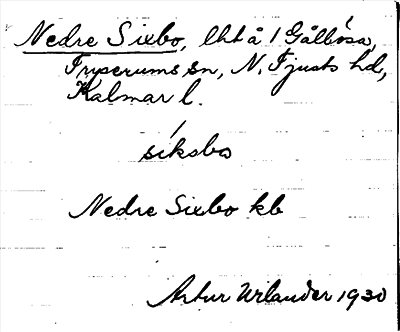 Nedre Sixbo, lht å 1 Gåkösa,
Fryserums sn, N. Tjusts hd,
Kalmar l.
síksbo
Nedre Sixbo kb
Artur Urlander 1930